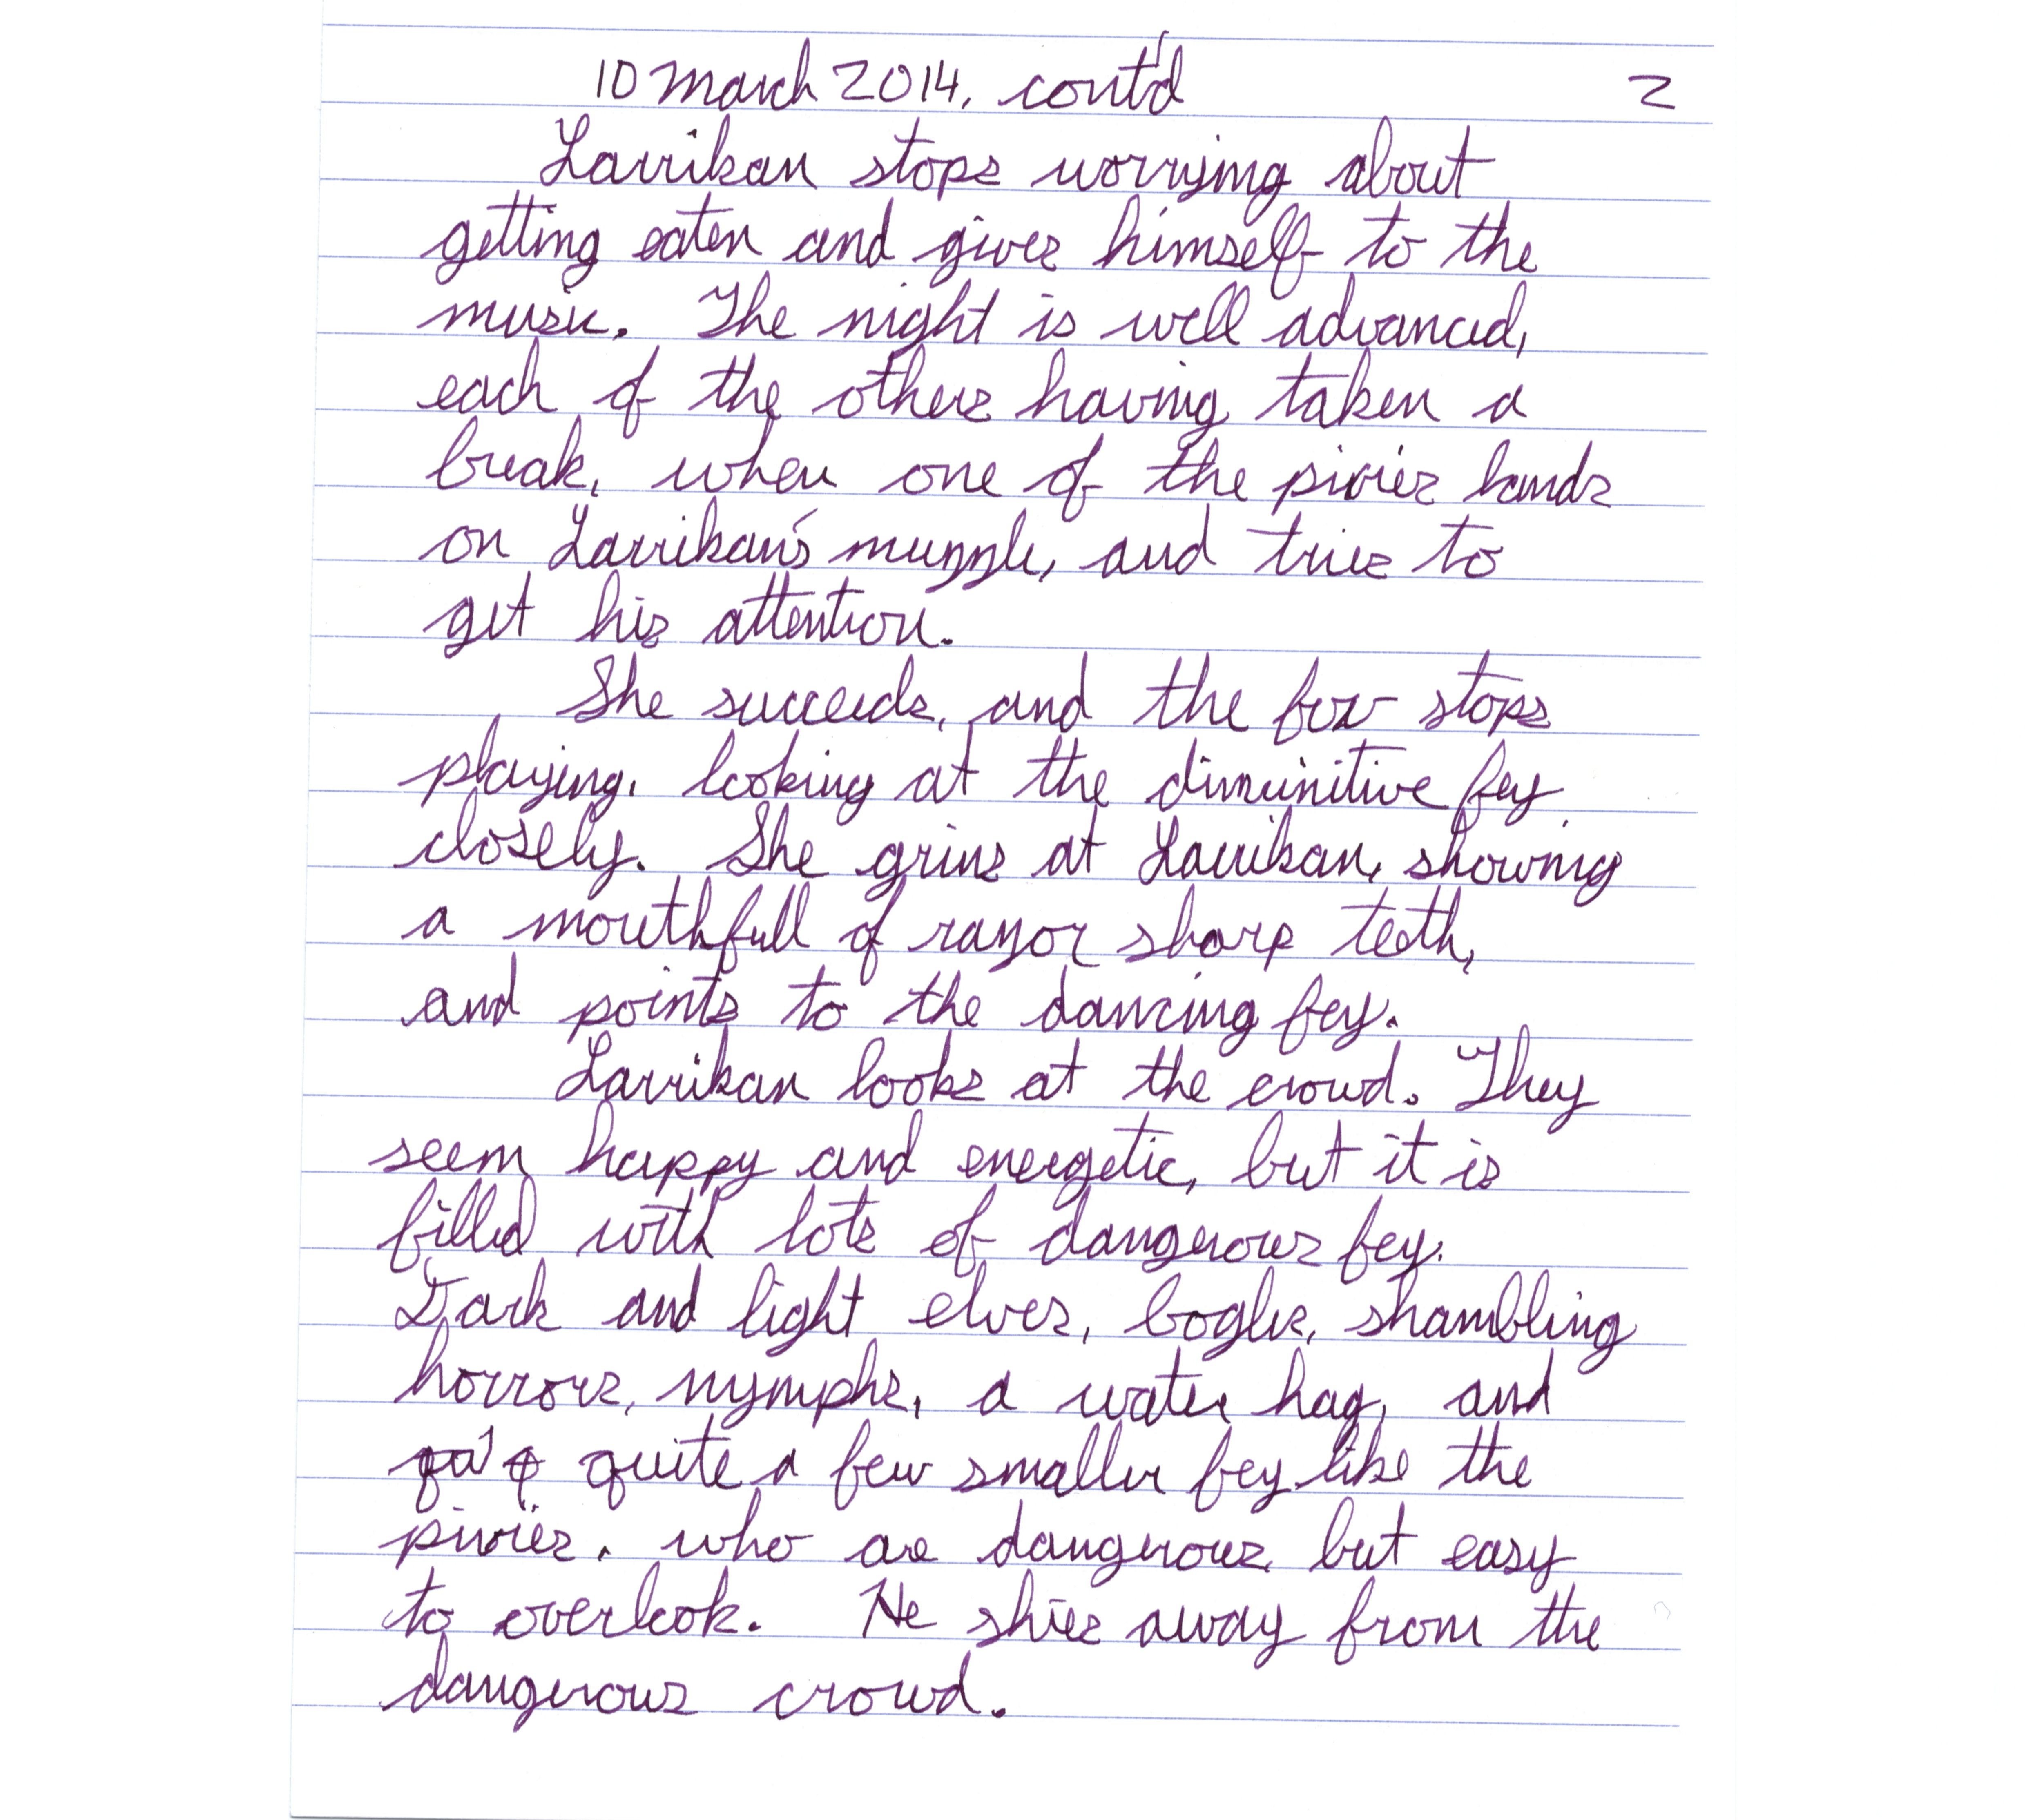 10 March 2014, cont'd 2
Larrikan stops worrying about
getting eaten and gives himself to the
music. The night is well advanced,
each of the others having taken a
break, when one of the pixies lands
on Larrikan's muzzle, and tries to
get his attention.
She succeeds, and the fox stops
playing, looking at the diminitive fey
closely. She grins at Larrikan, showing
a mouthfull of razor sharp teeth,
and points to the dancing fey.
Larrikan looks at the crowd. They
seem happy and energetic, but it is
filled with lots of dangerous fey.
Dark and light elves, bogles, shambling
horrors, nymphs, a water hag, and
quite a few smaller fey like the
pixies, who are dangerous, but easy
to overlook. He shies away from the
dangerous crowd.